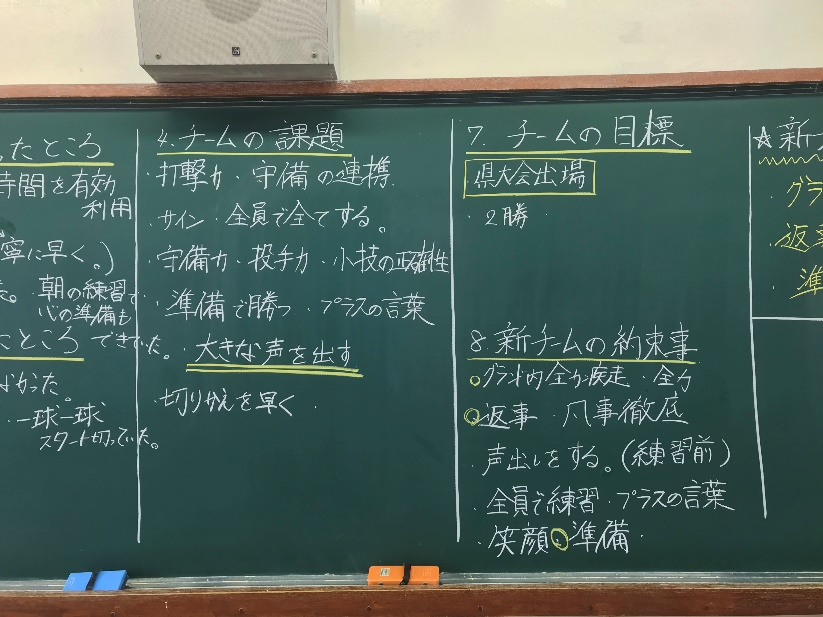 したところ
時間を有効
利用
寧に早く。)
朝の練習で
心の準備も
できていた。
たところ
なかった。
・一球一球
スタート切っていた。
4. チームの課題
・打撃力・守備の連携
・サイン・全員で全てする。
・守備力・投手力・小技の正確性
・準備で勝つ・プラスの言葉
・大きな声を出す
・切りかえを早く・
7. チームの目標
県大会出場
・2勝
8. 新チームの約束事
・グランド内全力疾走・全力
・返事・凡事徹底
・声出しをする。(練習前)
・全員で練習・プラスの言葉
・笑顔・準備
☆新
・グラ
・返事
・準